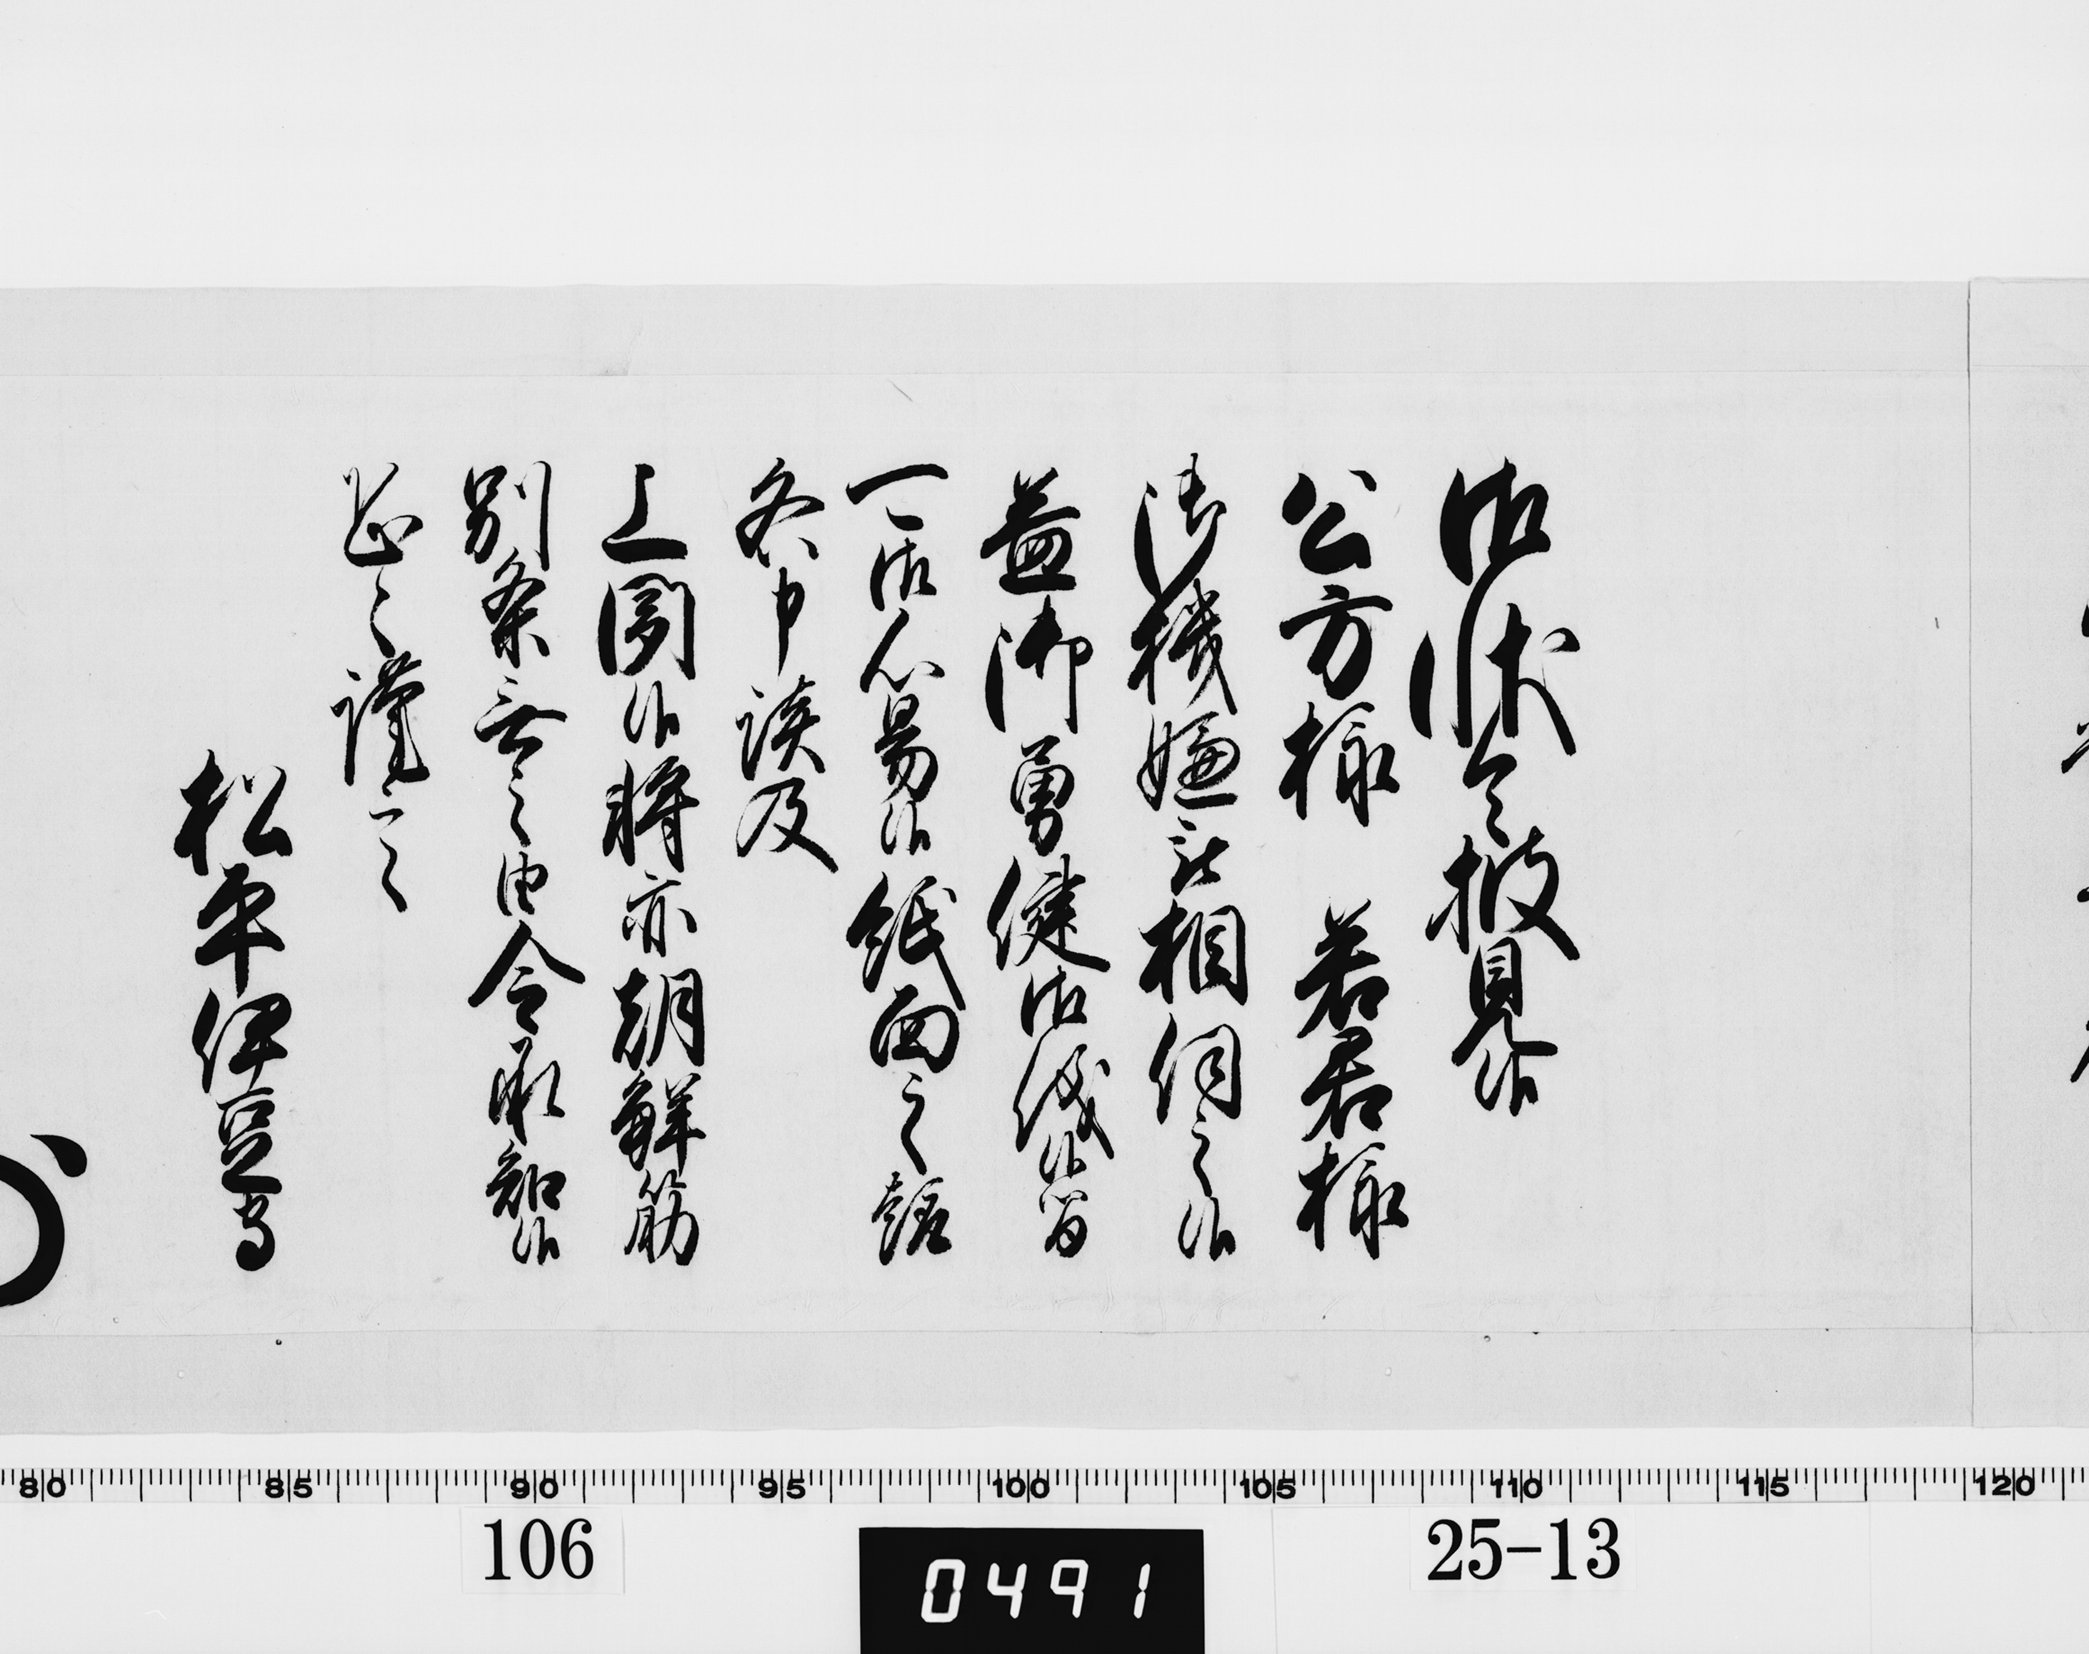 御状令披見候
公方様 若君様
御機嫌被相伺之候
益御勇健御儀候間
可御心易候紙面之趣
各申談及
上聞候将亦朝鮮筋
別条無之由令承知候
恐々謹言
松平伊豆守
80 85 90 95 100 105 110 115 120
106 0491 25-13